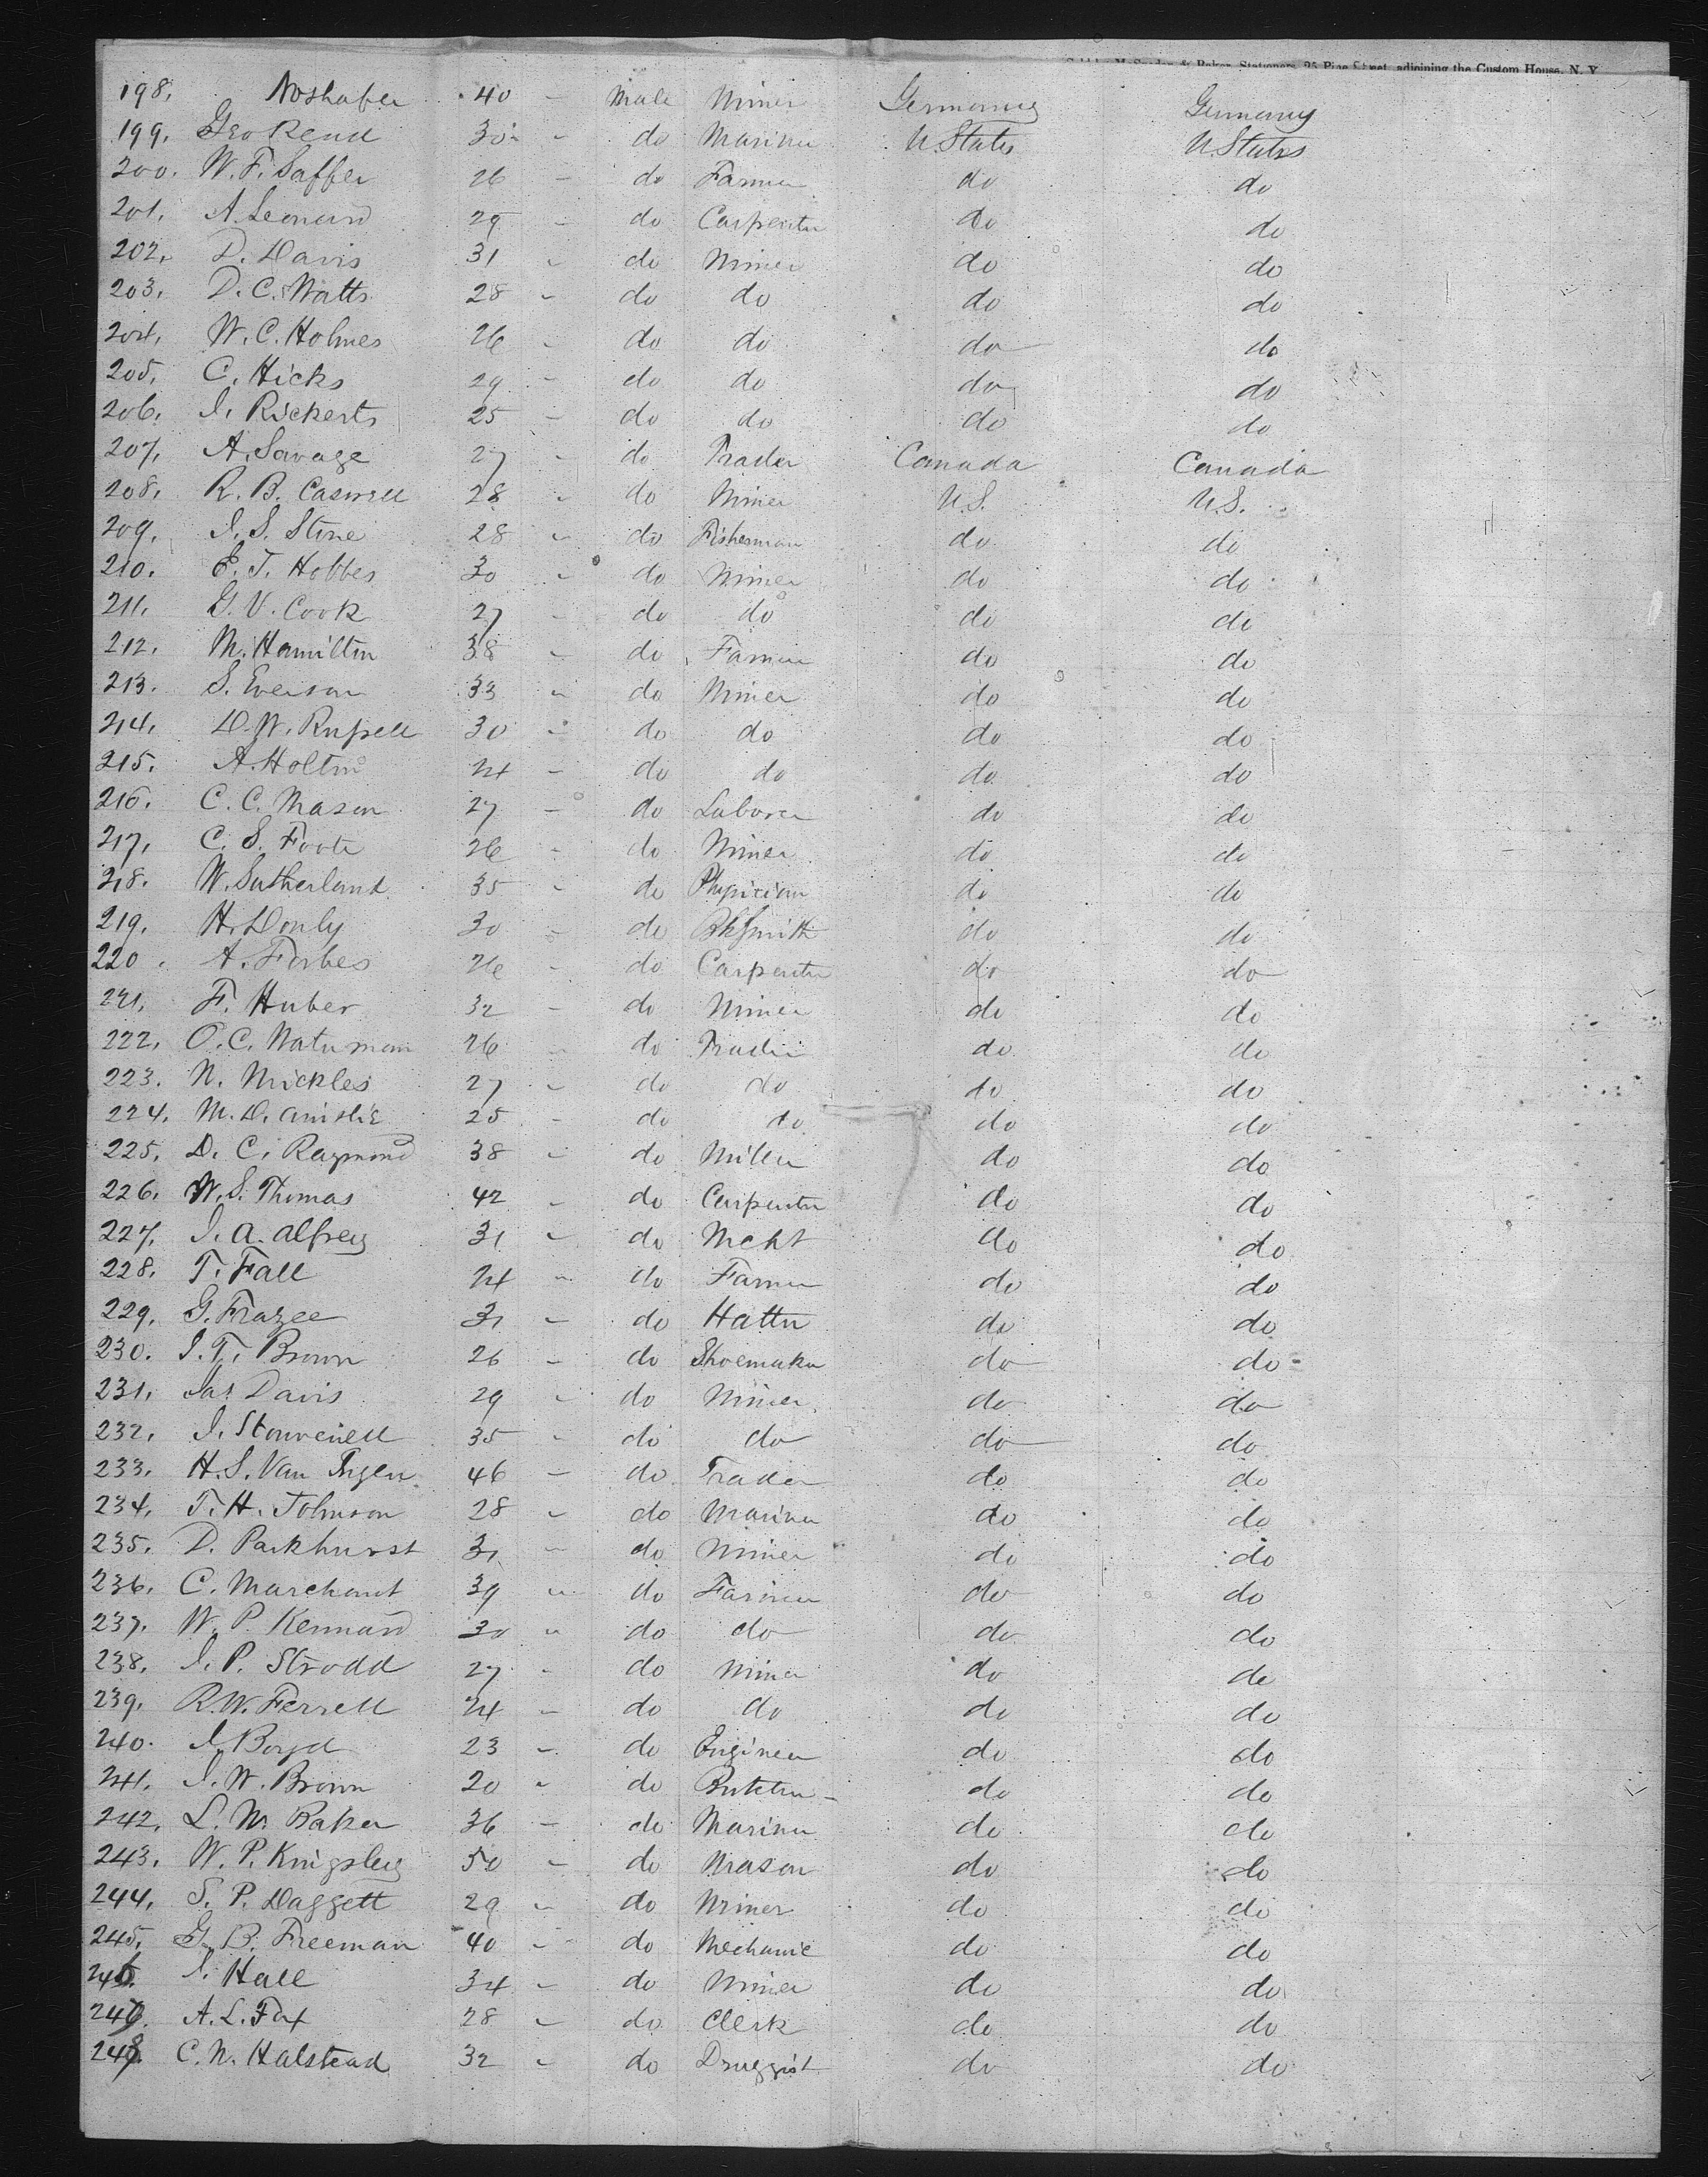 Stationers, 25 Pine Street, adjoining the Custom House, N. Y.
198. Noshafer 40 - Male Miner Germany Germany
199. Geo Read 30 - do Mariner U. States U. States
200. W. F. Saffer 26 - do Farmer do do
201. A. Leonard 29 - do Carpenter do do
202. D. Davis 31 - do Miner do do
203. D. C. Watts 28 - do do do do
204. W. C. Holmes 26 - do do do do
205. C. Hicks 29 - do do do do
206. J. Rickerts 25 - do do do do
207. A. Savage 27 - do Trader Canada Canada
208. R. B. Caswell 28 - do Miner U.S. U.S.
209. J. S. Stone 28 - do Fisherman do do
210. E. T. Hobbes 30 - do Miner do do
211. G. V. Cook 27 - do do do do
212. M. Hamilton 38 - do Farmer do do
213. S. Everson 33 - do Miner do do
214. D. W. Russell 30 - do do do do
215. A. Holton 24 - do do do do
216. C. C. Mason 27 - do Laborer do do
217. C. S. Foote 26 - do Miner do do
218. W. Sutherland 35 - do Physician do do
219. H. Donly 30 do BkSmith do do
220. A. Forbes 26 - do Carpenter do do
221. F. Huber 32 - do Miner do do
222. O. C. Waterman 26 - do Trader do do
223. N. Mickles 27 - do do do do
224. M. D. Ainslie 25 - do do do do
225. D. C. Raymond 38 - do Miller do do
226. W. S. Thomas 42 - do Carpenter do do
227. J. A. Alfrey 31 - do Mcht do do
228. T. Fall 24 - do Farmer do do
229. G. Frazee 31 - do Hatter do do
230. J. T. Brown 26 - do Shoemaker do do
231. Jas Davis 29 - do Miner do do
232. J. Stouvenell 35 - do do do do
233. H. S. Van Ingen 46 - do Trader do do
234. T. H. Johnson 28 - do Mariner do do
235. D. Parkhurst 31 - do Miner do do
236. C. Marchant 39 - do Farmer do do
237. W. P. Kennard 30 - do do do do
238. J. P. Strodd 27 - do Miner do do
239. R. W. Ferrell 24 - do do do do
240. J. Boyd 23 - do Engineer do do
241. J. W. Brown 20 - do Butcher do do
242. L. M. Baker 36 - do Mariner do do
243. W. P. Kingsley 50 - do Mason do do
244. S. P. Daggett 29 - do Miner do do
245. G. B. Freeman 40 - do Mechanic do do
246. J. Hall 34 - do Miner do do
247. A. L. Fox 28 - do Clerk do do
248. C. N. Halstead 32 - do Druggist do do